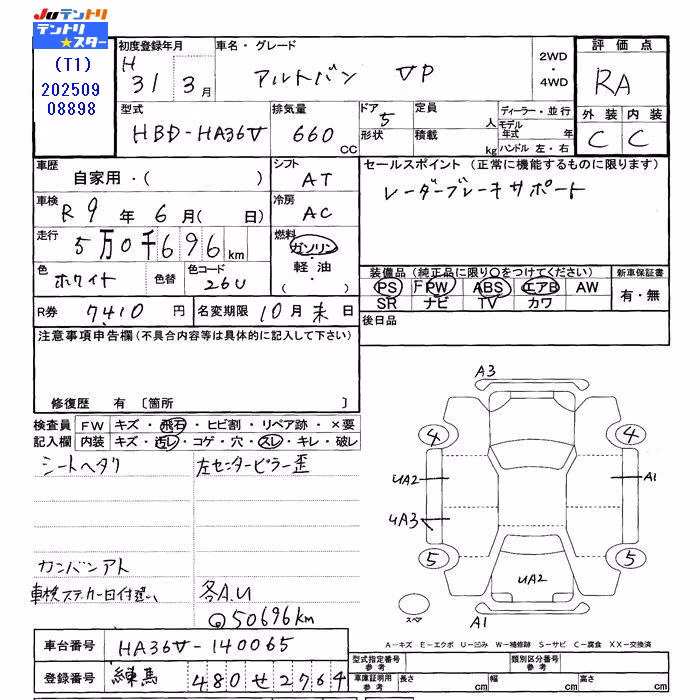 JUテントリ
テントリ
★スター
(T1)
202509
08898
初度登録年月
H 31年 3月
車名・グレード
アルトバン VP
2WD
・
4WD
評価点
RA
外装 内装
C C
型式
HBD-HA36V
排気量
660 CC
ドア 5
形状
定員 人
積載 kg
ディーラー・並行
モデル年式 年
ハンドル 左・右
車歴
自家用・( )
シフト
AT
セールスポイント (正常に機能するものに限ります)
レーダーブレーキサポート
車検
R9年 6月( 日)
冷房
AC
走行
5万0千696km
燃料
ガソリン
・
軽油
・
( )
色
ホワイト
色替
色コード
26U
装備品 (純正品に限り○をつけてください)
PS FPW ABS エアB AW
SR ナビ TV カワ
新車保証書
有・無
R券 7410円
名変期限 10月末日
後日品
注意事項申告欄(不具合内容等は具体的に記入して下さい)
修復歴 有 〔箇所 〕
検査員記入欄
FW キズ・飛石・ヒビ割・リペア跡・×要
内装 キズ・汚レ・コゲ・穴・スレ・キレ・破レ
シートヘタリ
左センターピラー歪
カンバンアト
車検ステッカー日付違い
各A.U
50696km
A3
4 4
UA2 A1
UA3
5 5
UA2
スペア
A1
A-キズ E-エクボ U-凹み W-補修跡 S-サビ C-腐食 XX-交換済
車台番号 HA36V-140065
登録番号 練馬 480 せ 2764
型式指定番号 参考
類別区分番号 参考
車庫証明用 参考
長さ cm
幅 cm
高さ cm